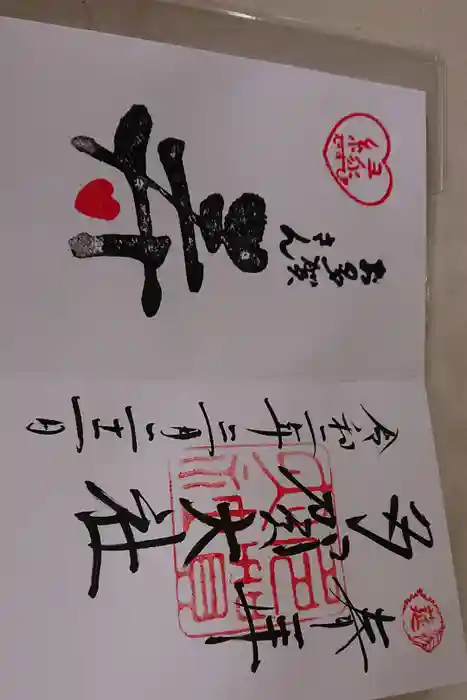 奉拝
多賀大社
令和二年三月二十一日
お多賀さん
昇